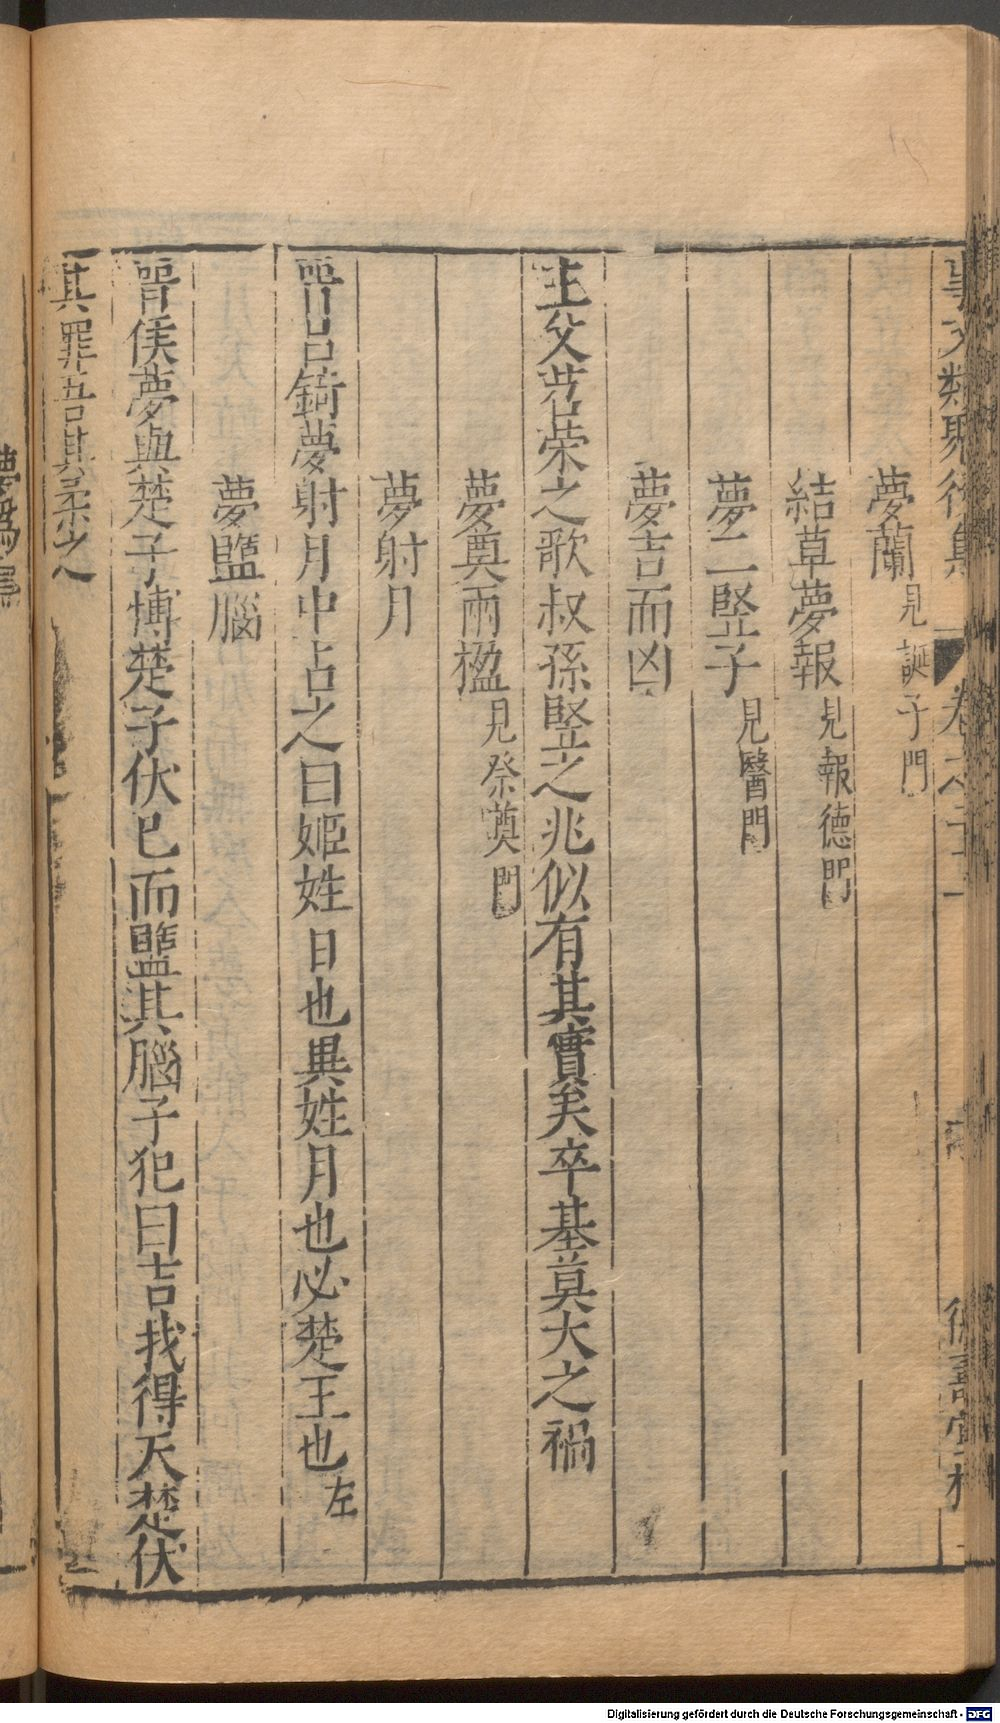 事文類聚後集 卷之二十一 德壽堂梓
夢蘭 見誕子門
結草夢報 見報德門
夢二竪子 見醫門
夢吉而凶
主父苕荣之歌叔孫竪之兆似有其實矣卒基莫大之禍
夢奠兩楹 見祭奠門
夢射月
晋吕錡夢射月中占之曰姬姓日也異姓月也必楚王也 左
夢盬腦
晋侯夢與楚子博楚子伏已而盬其腦子犯曰吉我得天楚伏
其罪吾其柔之
Digitalisierung gefördert durch die Deutsche Forschungsgemeinschaft - DFG